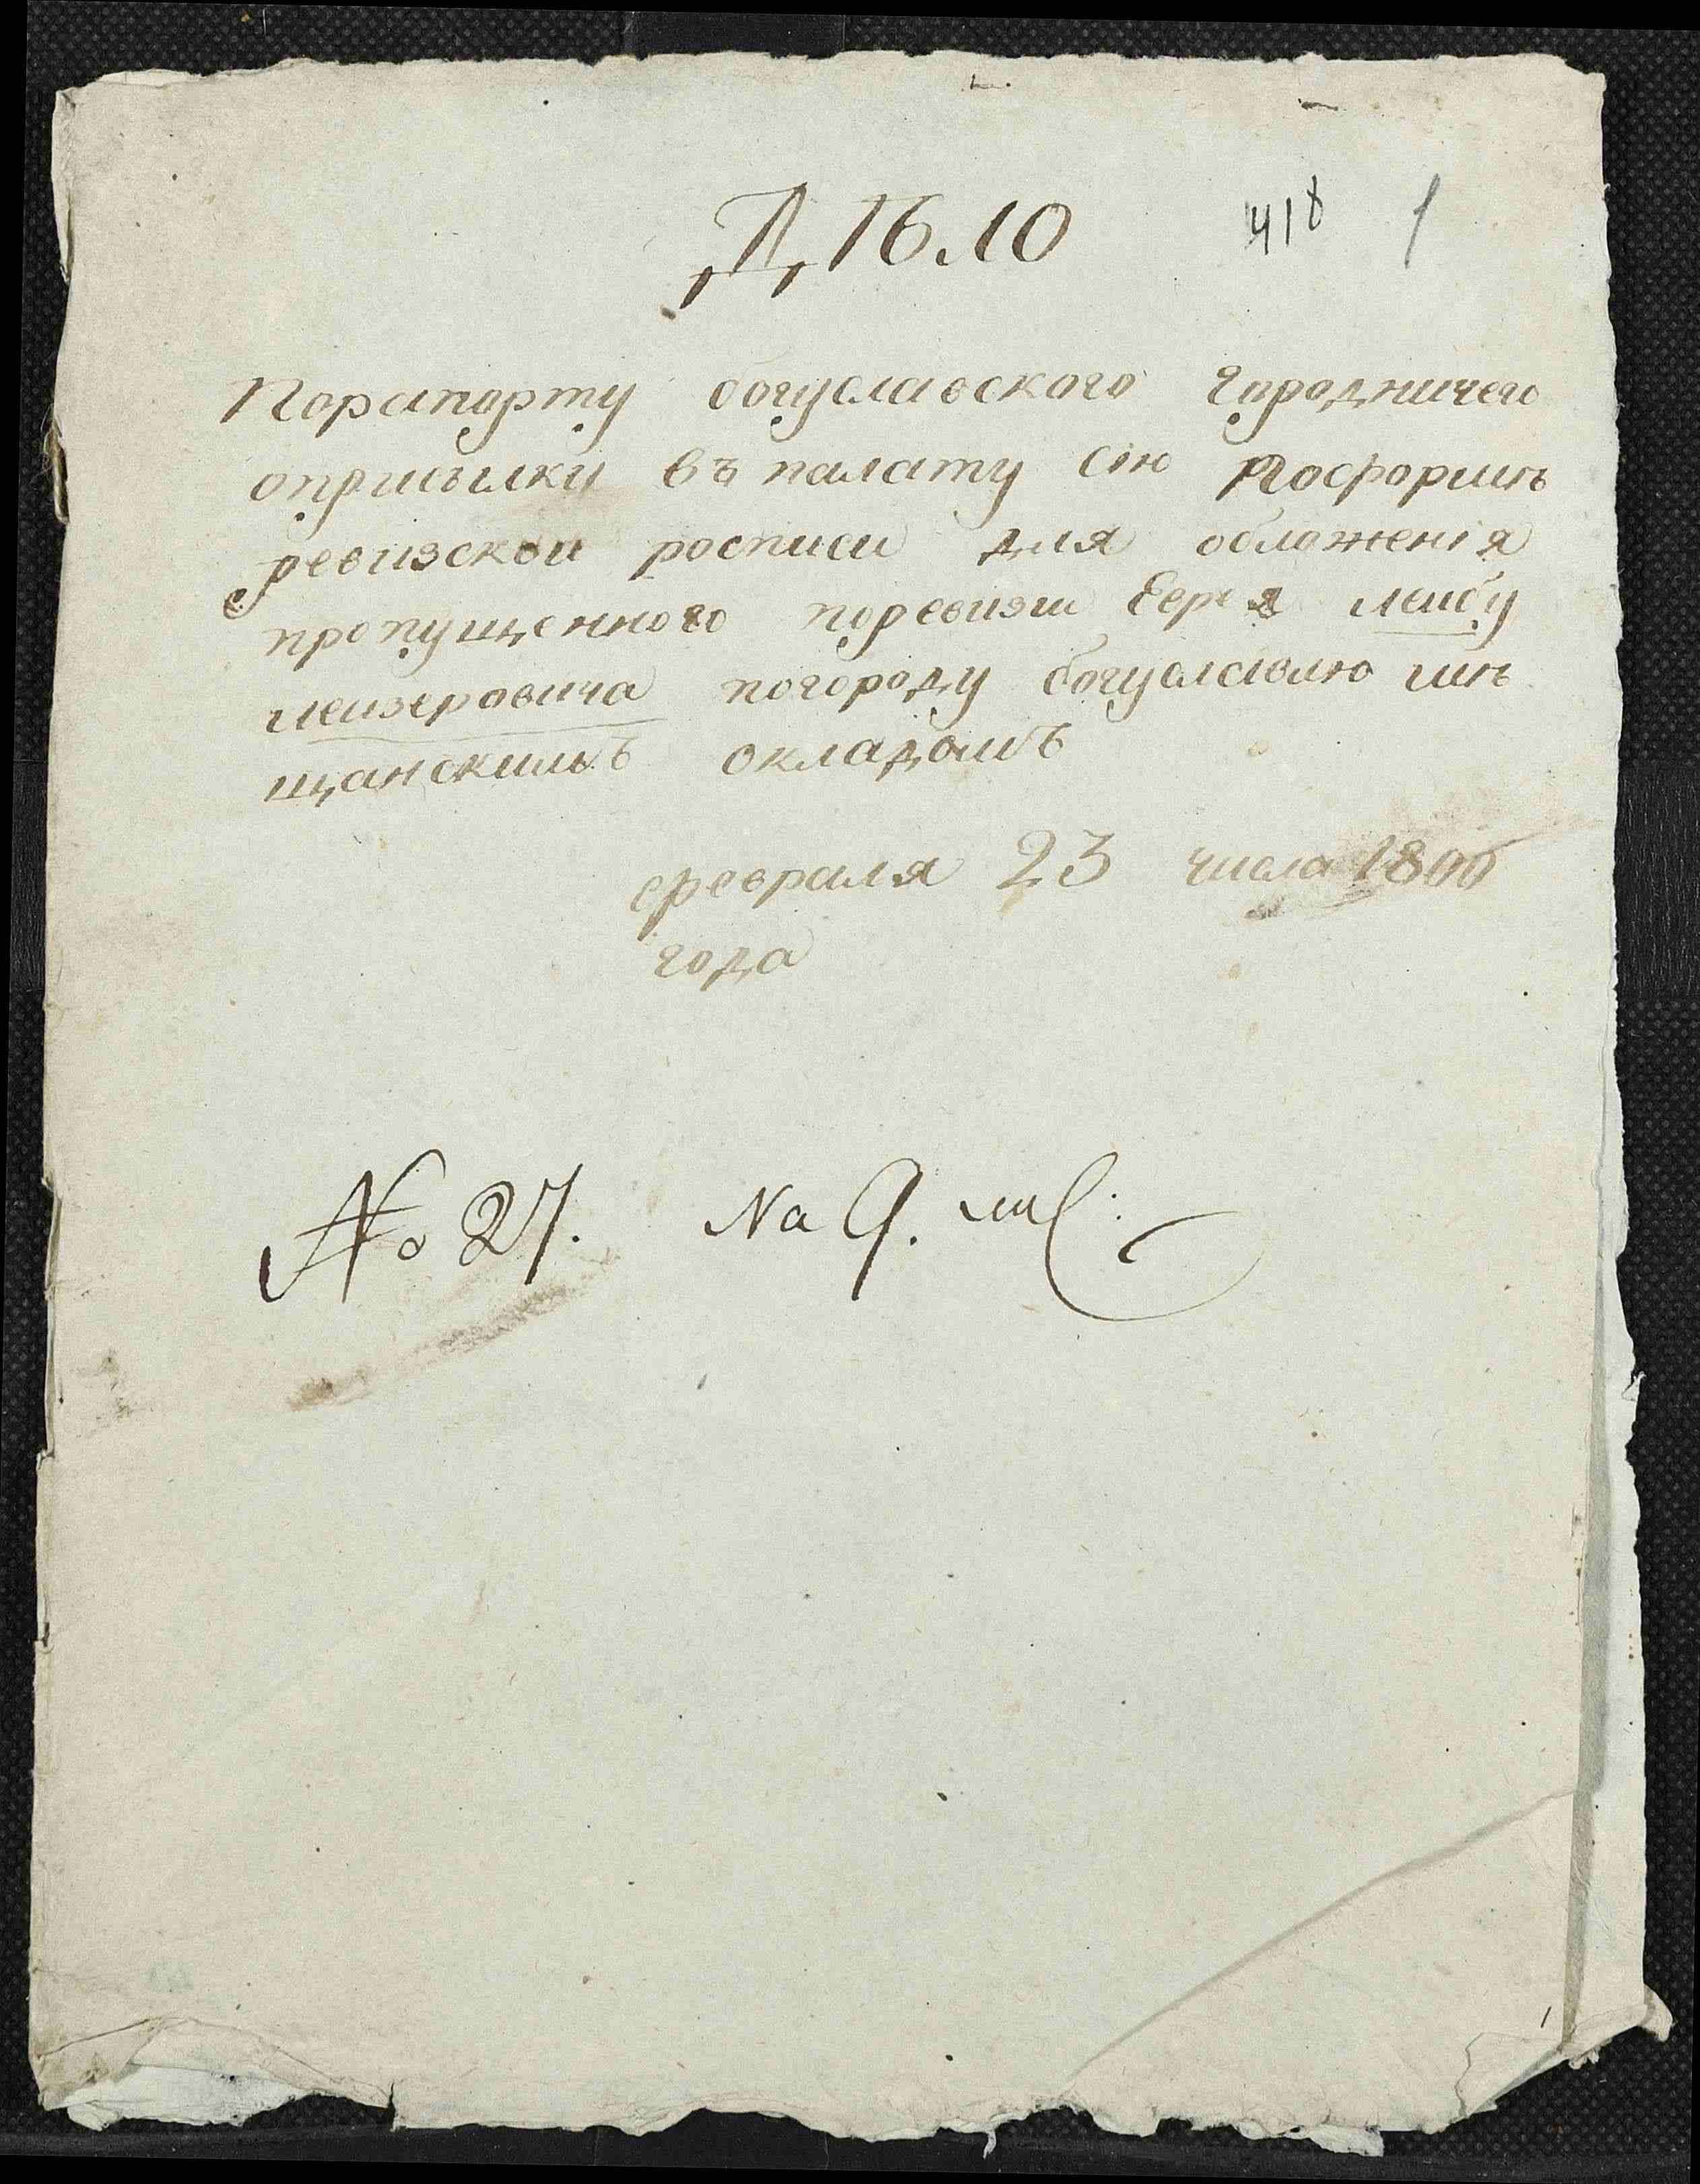 ДѢЛО
418 1
Порапорту богуславского городничего
оприсылки въ палату сію поформѣ
ревизской росписи для обложенія
пропущенного поревизіи Еврея Лейбу
Лейзеровича погороду богуславлю мѣ
щанскимъ окладомъ
февраля 23 числа 1800
года
№ 27. На 9. лис: